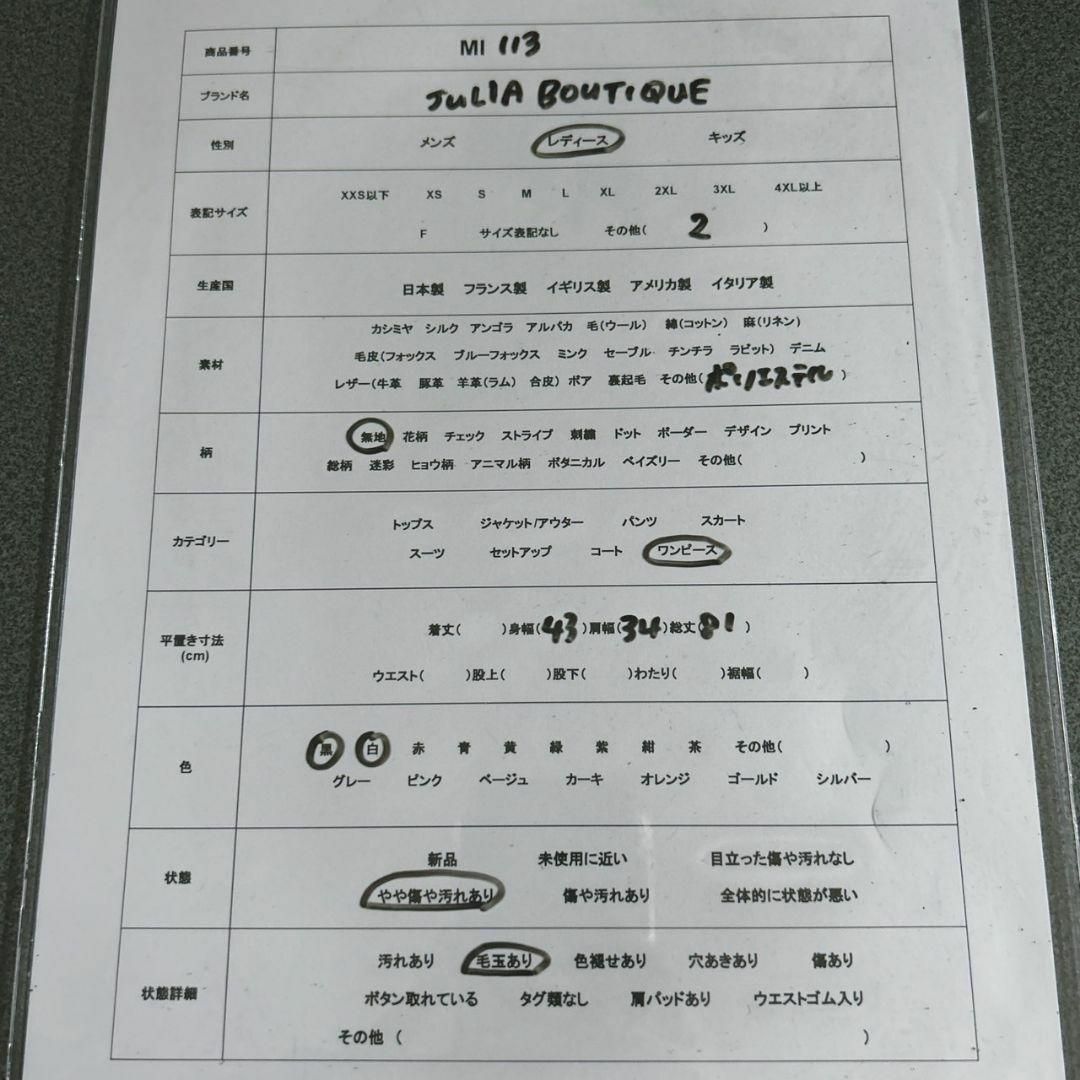 商品番号 MI 113
ブランド名 JULIA BOUTIQUE
性別 メンズ レディース キッズ
表記サイズ
XXS以下 XS S M L XL 2XL 3XL 4XL以上
F サイズ表記なし その他( 2 )
生産国 日本製 フランス製 イギリス製 アメリカ製 イタリア製
素材
カシミヤ シルク アンゴラ アルパカ 毛(ウール) 綿(コットン) 麻(リネン)
毛皮(フォックス ブルーフォックス ミンク セーブル チンチラ ラビット) デニム
レザー(牛革 豚革 羊革(ラム) 合皮) ボア 裏起毛 その他(ポリエステル)
柄
無地 花柄 チェック ストライプ 刺繍 ドット ボーダー デザイン プリント
総柄 迷彩 ヒョウ柄 アニマル柄 ボタニカル ペイズリー その他( )
カテゴリー
トップス ジャケット/アウター パンツ スカート
スーツ セットアップ コート ワンピース
平置き寸法
(cm)
着丈( )身幅(43)肩幅(34)総丈81 )
ウエスト( )股上( )股下( )わたり( )裾幅( )
色
黒 白 赤 青 黄 緑 紫 紺 茶 その他( )
グレー ピンク ベージュ カーキ オレンジ ゴールド シルバー
状態
新品 未使用に近い 目立った傷や汚れなし
やや傷や汚れあり 傷や汚れあり 全体的に状態が悪い
状態詳細
汚れあり 毛玉あり 色褪せあり 穴あきあり 傷あり
ボタン取れている タグ類なし 肩パッドあり ウエストゴム入り
その他 ( )